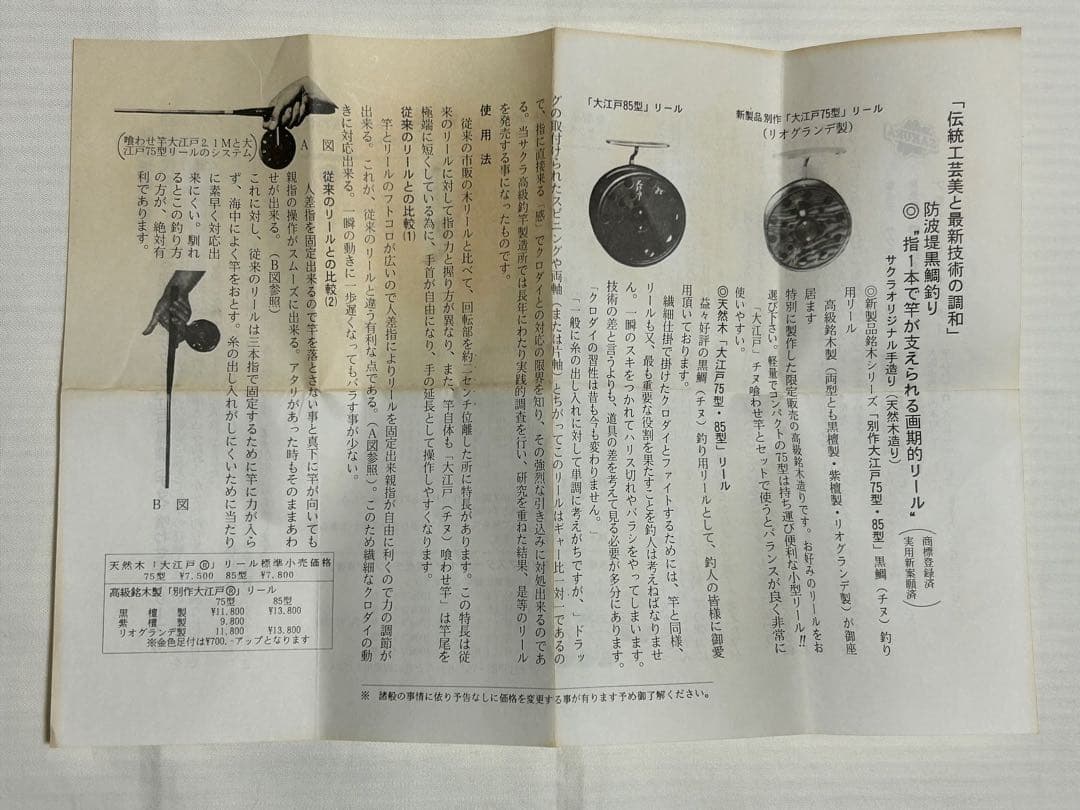 「伝統工芸美と最新技術の調和」
防波堤黒鯛釣り
◎〝指1本で竿が支えられる画期的リール〟
(商標登録済
実用新案願済)
サクラオリジナル手造り(天然木造り)
◎新製品銘木シリーズ「別作大江戸75型・85型」黒鯛(チヌ)釣り
用リール
高級銘木製(両型とも黒檀製・紫檀製・リオグランデ製)が御座
居ます
特別に製作した限定販売の高級銘木造りです。お好みのリールをお
選び下さい。軽量でコンパクトの75型は持ち運び便利な小型リール!!
「大江戸」チヌ喰わせ竿とセットで使うとバランスが良く非常に
使いやすい。
新製品別作「大江戸75型」リール
(リオグランデ製)
◎天然木「大江戸75型・85型」リール
益々好評の黒鯛(チヌ)釣り用リールとして、釣人の皆様に御愛
用頂いております。
繊細仕掛で掛けたクロダイとファイトするためには、竿と同様、
リールも又、最も重要な役割を果たすことを釣人は考えねばなりませ
ん。一瞬のスキをつかれてハリス切れやバラシをやってしまいます。
技術の差と言うよりも、道具の差を考えて見る必要が多分にあります。
「クロダイの習性は昔も今も変わりません。」
「一般に糸の出し入れに対して単調に考えがちですが、」ドラッ
「大江戸85型」リール
グの取付けられたスピニングや両軸(または片軸)とちがってこのリールはギャー比一対一であるの
で、指に直接来る「感」でクロダイとの対応の限界を知り、その強烈な引き込みに対処出来るのであ
る。当サクラ高級釣竿製造所では長年にわたり実践的調査を行い、研究を重ねた結果、是等のリール
を発売する事になったものです。
使用法
従来の市販の木リールと比べて、回転部を約二センチ位離した所に特長があります。この特長は従
来のリールに対して指の力と握り方が異なり、また、竿自体も「大江戸(チヌ)喰わせ竿」は竿尾を
極端に短くしている為に、手首が自由になり、手の延長として操作しやすくなります。
従来のリールとの比較(1)
竿とリールのフトコロが広いので人差指によりリールを固定出来親指が自由に利くので力の調節が
出来る。これが、従来のリールと違う有利な点である。(A図参照)。このため繊細なクロダイの動
きに対応出来る。一瞬の動きに一歩遅くなってもバラす事が少ない。
従来のリールとの比較(2)
人差指を固定出来るので竿を落とさない事と真下に竿が向いても
親指の操作がスムーズに出来る。アタリがあった時もそのままあわ
せが出来る。(B図参照)
これに対し、従来のリールは三本指で固定するために竿に力が入ら
ず、海中によく竿をおとす。糸の出し入れがしにくいために当たり
に素早く対応出
来にくい。馴れ
るとこの釣り方
の方が、絶対有
利であります。
A 図
(喰わせ竿大江戸2.1Mと大
江戸75型リールのシステム)
B 図
天然木「大江戸®」リール標準小売価格
75型 ¥7,500 85型 ¥7,800
高級銘木製「別作大江戸®」リール
75型 85型
黒檀製 ¥11,800 ¥13,800
紫檀製 9,800
リオグランデ製 11,800 ¥13,800
※金色足付は¥700.-アップとなります
※ 諸般の事情に依り予告なしに価格を変更する事が有ります予め御了解ください。